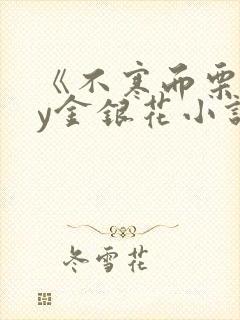 《不寒而栗
y金银花小说
冬雪花